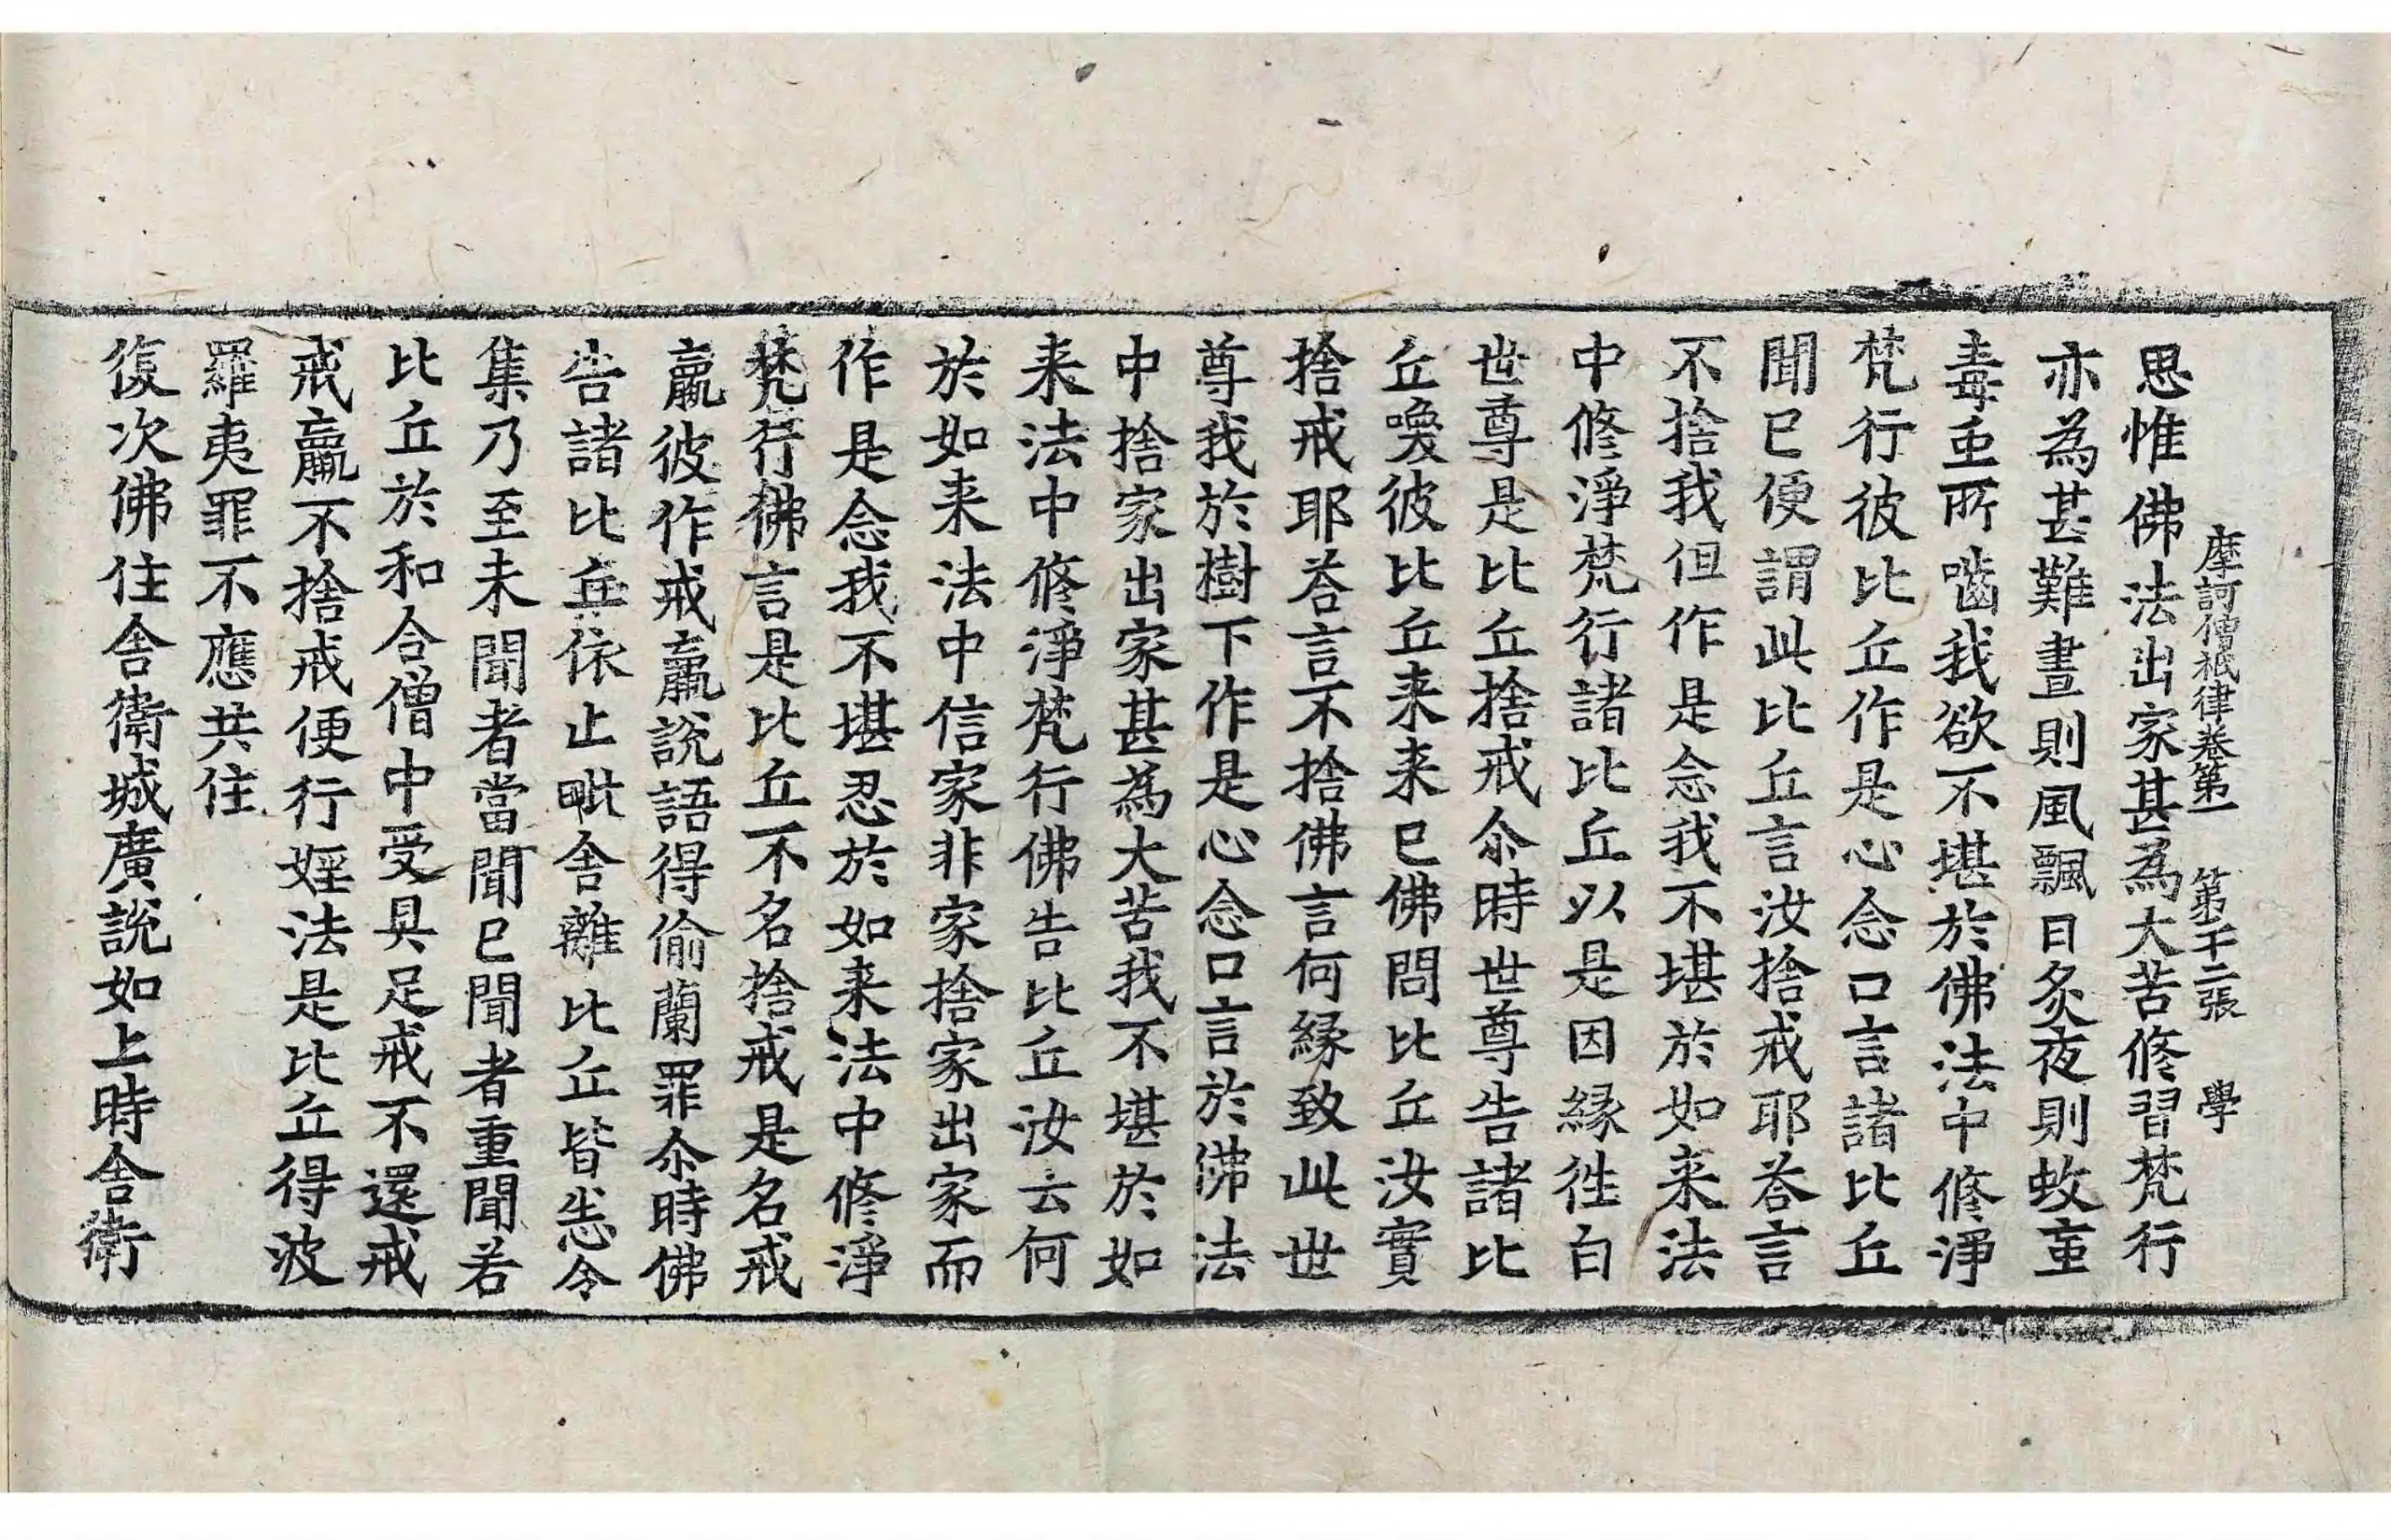 摩訶僧祇律卷第一 第二十二張 學
思惟佛法出家甚為大苦修習梵行
亦為甚難晝則風飄日炙夜則蚊䖝
毒䖝所嚙我欲不堪於佛法中修淨
梵行彼比丘作是心念口言諸比丘
聞已便謂此比丘言汝捨戒耶荅言
不捨我但作是念我不堪於如来法
中修淨梵行諸比丘以是因緣徃白
世尊是比丘捨戒尒時世尊告諸比
丘喚彼比丘来来已佛問比丘汝實
捨戒耶荅言不捨佛言何緣致此世
尊我於樹下作是心念口言於佛法
中捨家出家甚為大苦我不堪於如
来法中修淨梵行佛告比丘汝云何
於如来法中信家非家捨家出家而
作是念我不堪忍於如来法中修淨
梵行佛言是比丘不名捨戒是名戒
羸彼作戒羸說語得偷蘭罪尒時佛
告諸比丘依止毗舍離比丘皆悉令
集乃至未聞者當聞已聞者重聞若
比丘於和合僧中受具足戒不還戒
戒羸不捨戒便行婬法是比丘得波
羅夷罪不應共住
復次佛住舍衛城廣說如上時舍衛